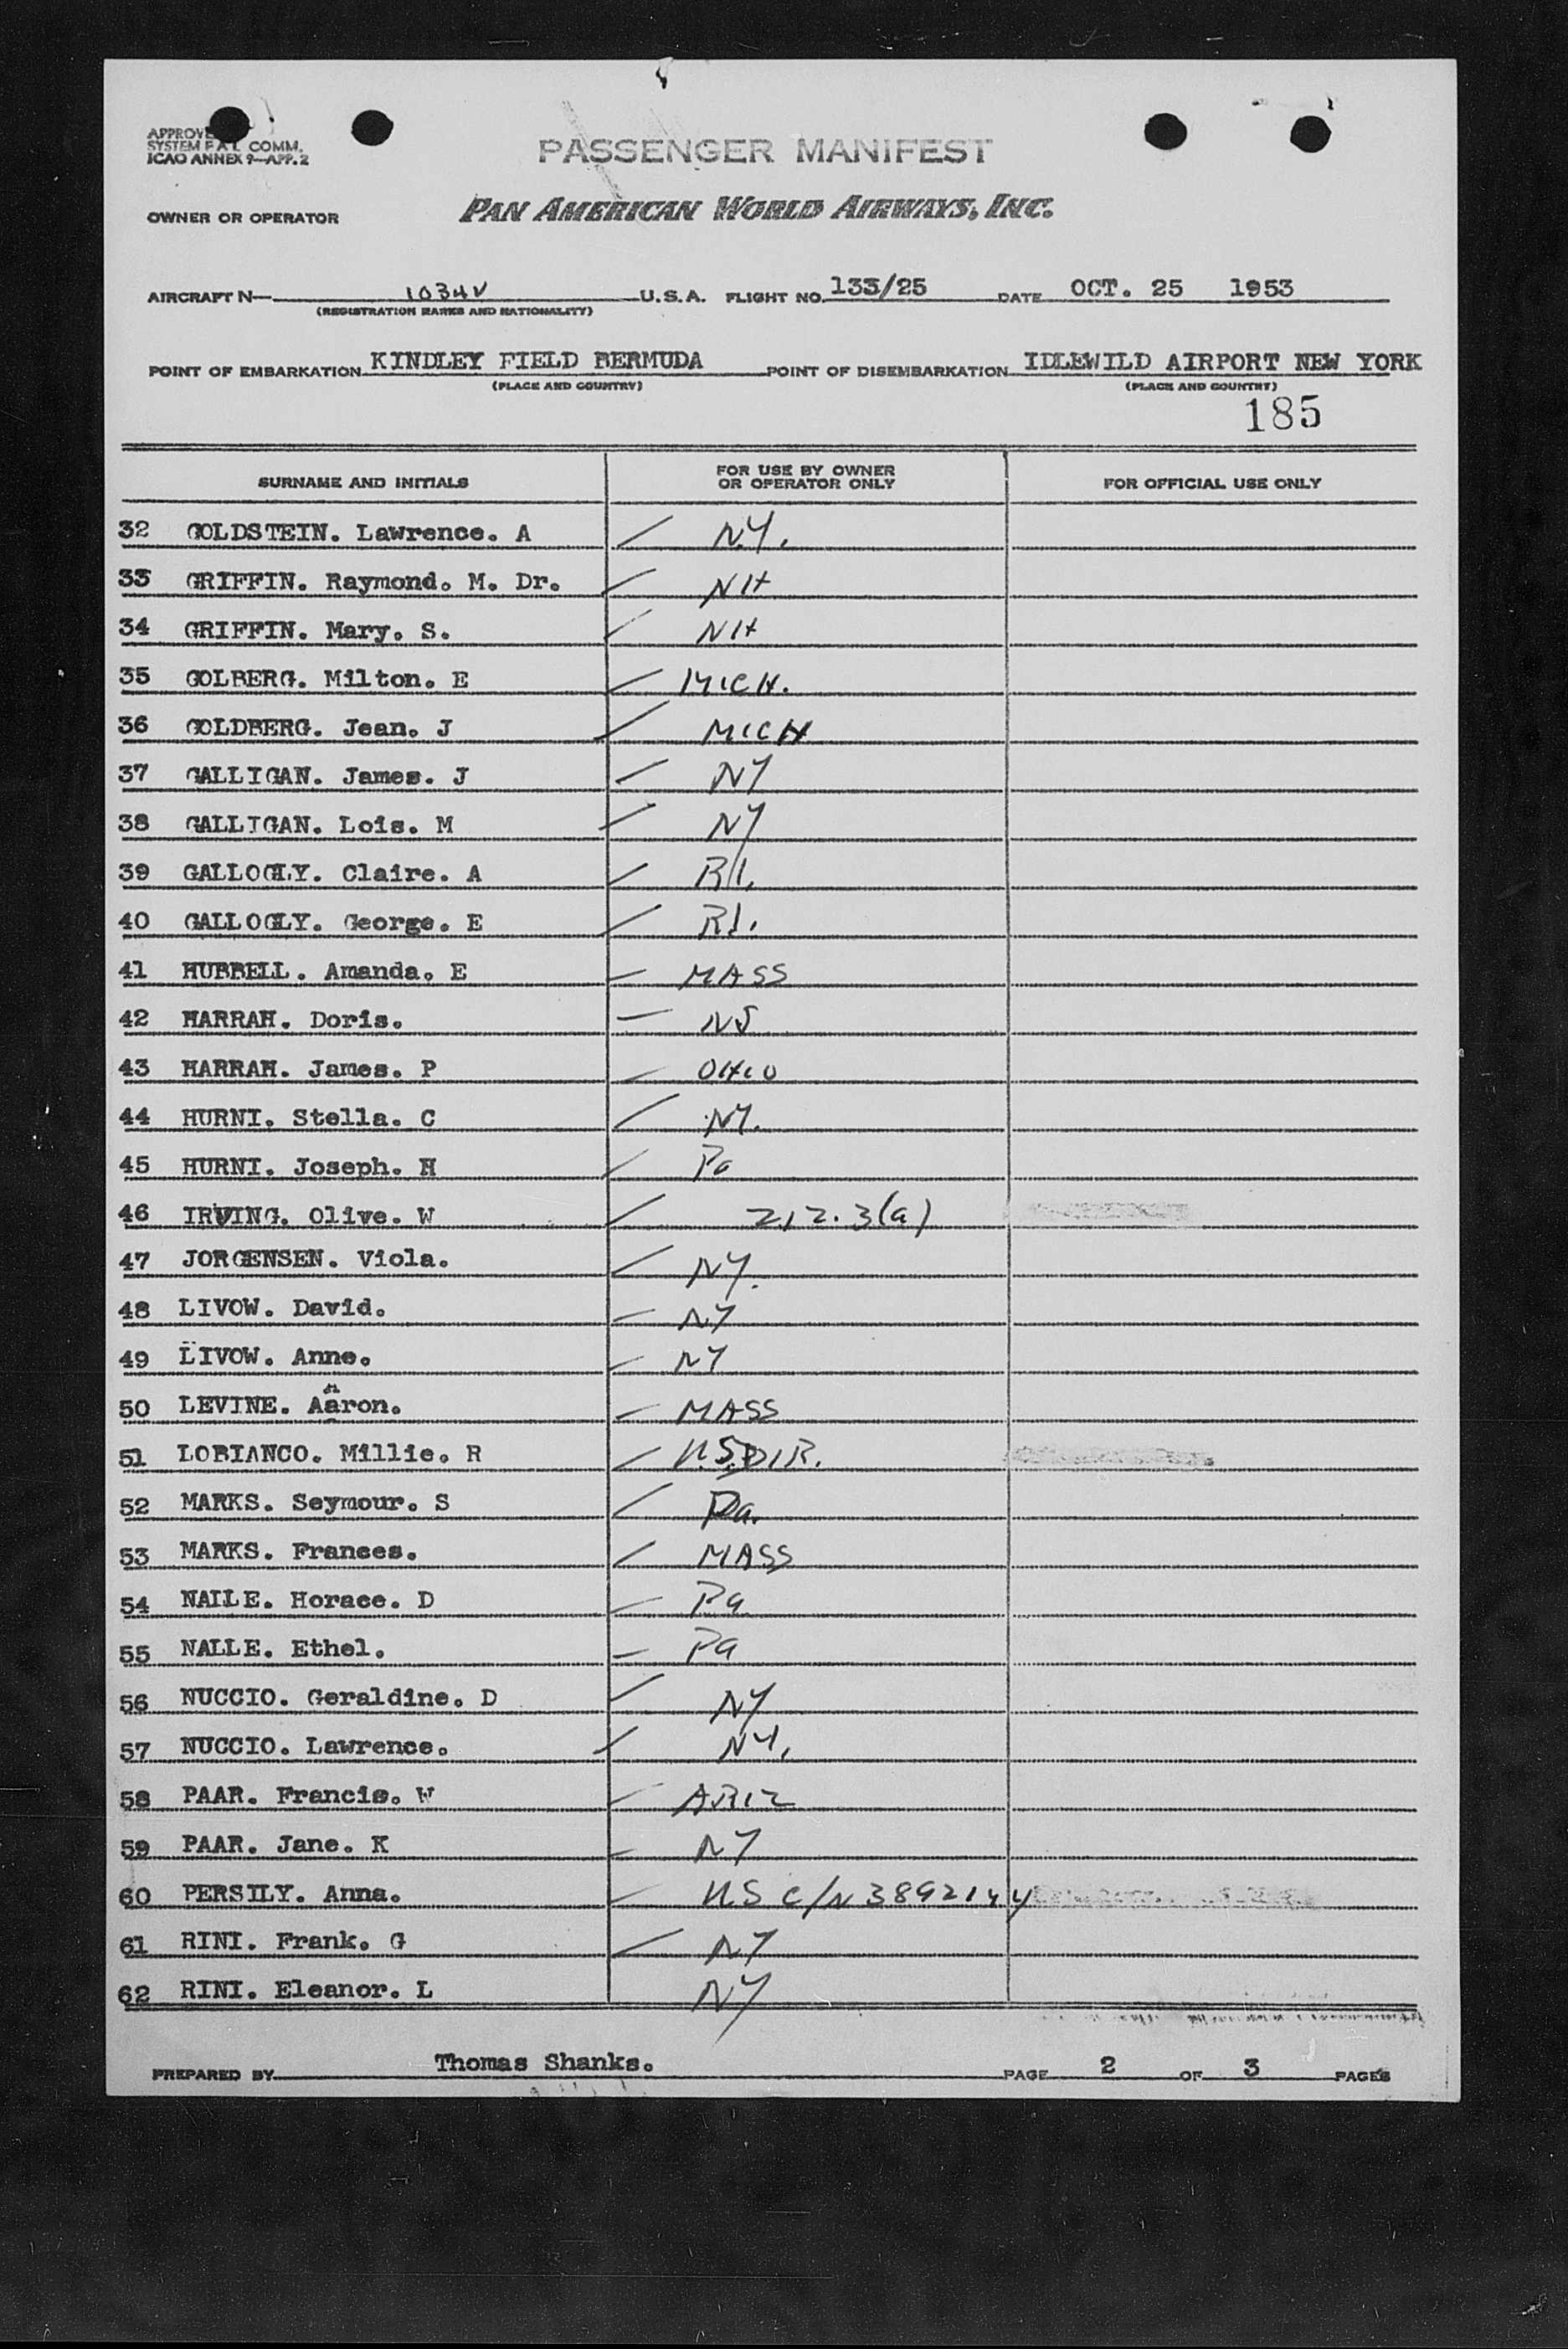 APPROVE
SYSTEM F A L COMM.
ICAO ANNEX 9—APP. 2
PASSENGER MANIFEST
OWNER OR OPERATOR PAN AMERICAN WORLD AIRWAYS, INC.
AIRCRAFT N— 1034V U.S.A. FLIGHT NO. 133/25 DATE OCT. 25 1953
(REGISTRATION MARKS AND NATIONALITY)
POINT OF EMBARKATION KINDLEY FIELD BERMUDA POINT OF DISEMBARKATION IDLEWILD AIRPORT NEW YORK
(PLACE AND COUNTRY) (PLACE AND COUNTRY)
185
SURNAME AND INITIALS FOR USE BY OWNER OR OPERATOR ONLY FOR OFFICIAL USE ONLY
32 GOLDSTEIN. Lawrence. A N.Y.
33 GRIFFIN. Raymond. M. Dr. NH
34 GRIFFIN. Mary. S. NH
35 GOLBERG. Milton. E MICH.
36 GOLDBERG. Jean. J MICH
37 GALLIGAN. James. J NY
38 GALLIGAN. Lois. M NY
39 GALLOGLY. Claire. A RI.
40 GALLOGLY. George. E RI.
41 HUBBELL. Amanda. E MASS
42 HARRAH. Doris. NJ
43 HARRAH. James. P OHIO
44 HURNI. Stella. C NY.
45 HURNI. Joseph. H Pa
46 IRVING. Olive. W 212.3(a)
47 JORGENSEN. Viola. NY.
48 LIVOW. David. NY
49 LIVOW. Anne. NY
50 LEVINE. Aaron. MASS
51 LOBIANCO. Millie. R U.S. DIR.
52 MARKS. Seymour. S Pa.
53 MARKS. Frances. MASS
54 NAILE. Horace. D Pa
55 NALLE. Ethel. Pa
56 NUCCIO. Geraldine. D NY
57 NUCCIO. Lawrence. NY.
58 PAAR. Francis. W ARIZ
59 PAAR. Jane. K NY
60 PERSILY. Anna. US C/N 3892144
61 RINI. Frank. G NY
62 RINI. Eleanor. L NY
PREPARED BY Thomas Shanks. PAGE 2 OF 3 PAGES